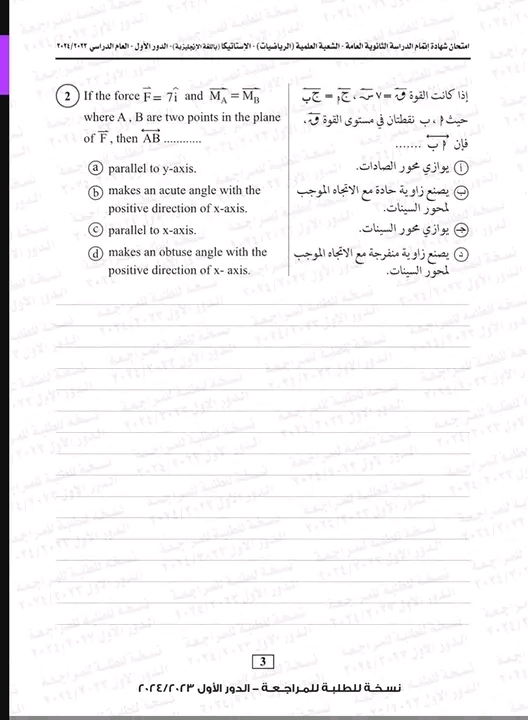 امتحان شهادة إتمام الدراسة الثانوية العامة - الشعبة العلمية (الرياضيات) - الإستاتيكا (باللغة الإنجليزية) - الدور الأول - العام الدراسي ٢٠٢٤/٢٠٢٣
2 If the force F⃗ = 7î and M⃗_A = M⃗_B
where A , B are two points in the plane
of F⃗ , then A͞B ............
ⓐ parallel to y-axis.
ⓑ makes an acute angle with the
positive direction of x-axis.
ⓒ parallel to x-axis.
ⓓ makes an obtuse angle with the
positive direction of x- axis.
إذا كانت القوة ق = ٧ س ، ج_أ = ج_ب
حيث أ ، ب نقطتان في مستوى القوة ق ،
فإن أ ب .......
أ يوازي محور الصادات.
ب يصنع زاوية حادة مع الاتجاه الموجب
لمحور السينات.
ج يوازي محور السينات.
د يصنع زاوية منفرجة مع الاتجاه الموجب
لمحور السينات.
3
نسخة للطلبة للمراجعة – الدور الأول ٢٠٢٤/٢٠٢٣